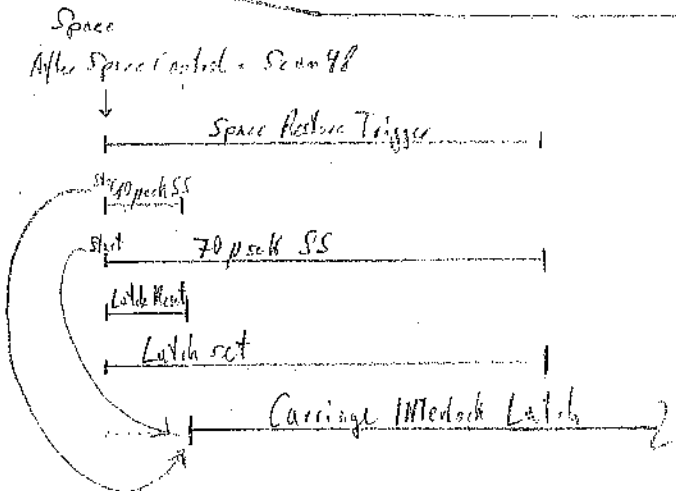 Space
After Space Control • Scan 48
Space Restore Trigger
Start 10 μsec SS
Start 70 μsec SS
Latch Reset
Latch set
Carriage INterlock Latch